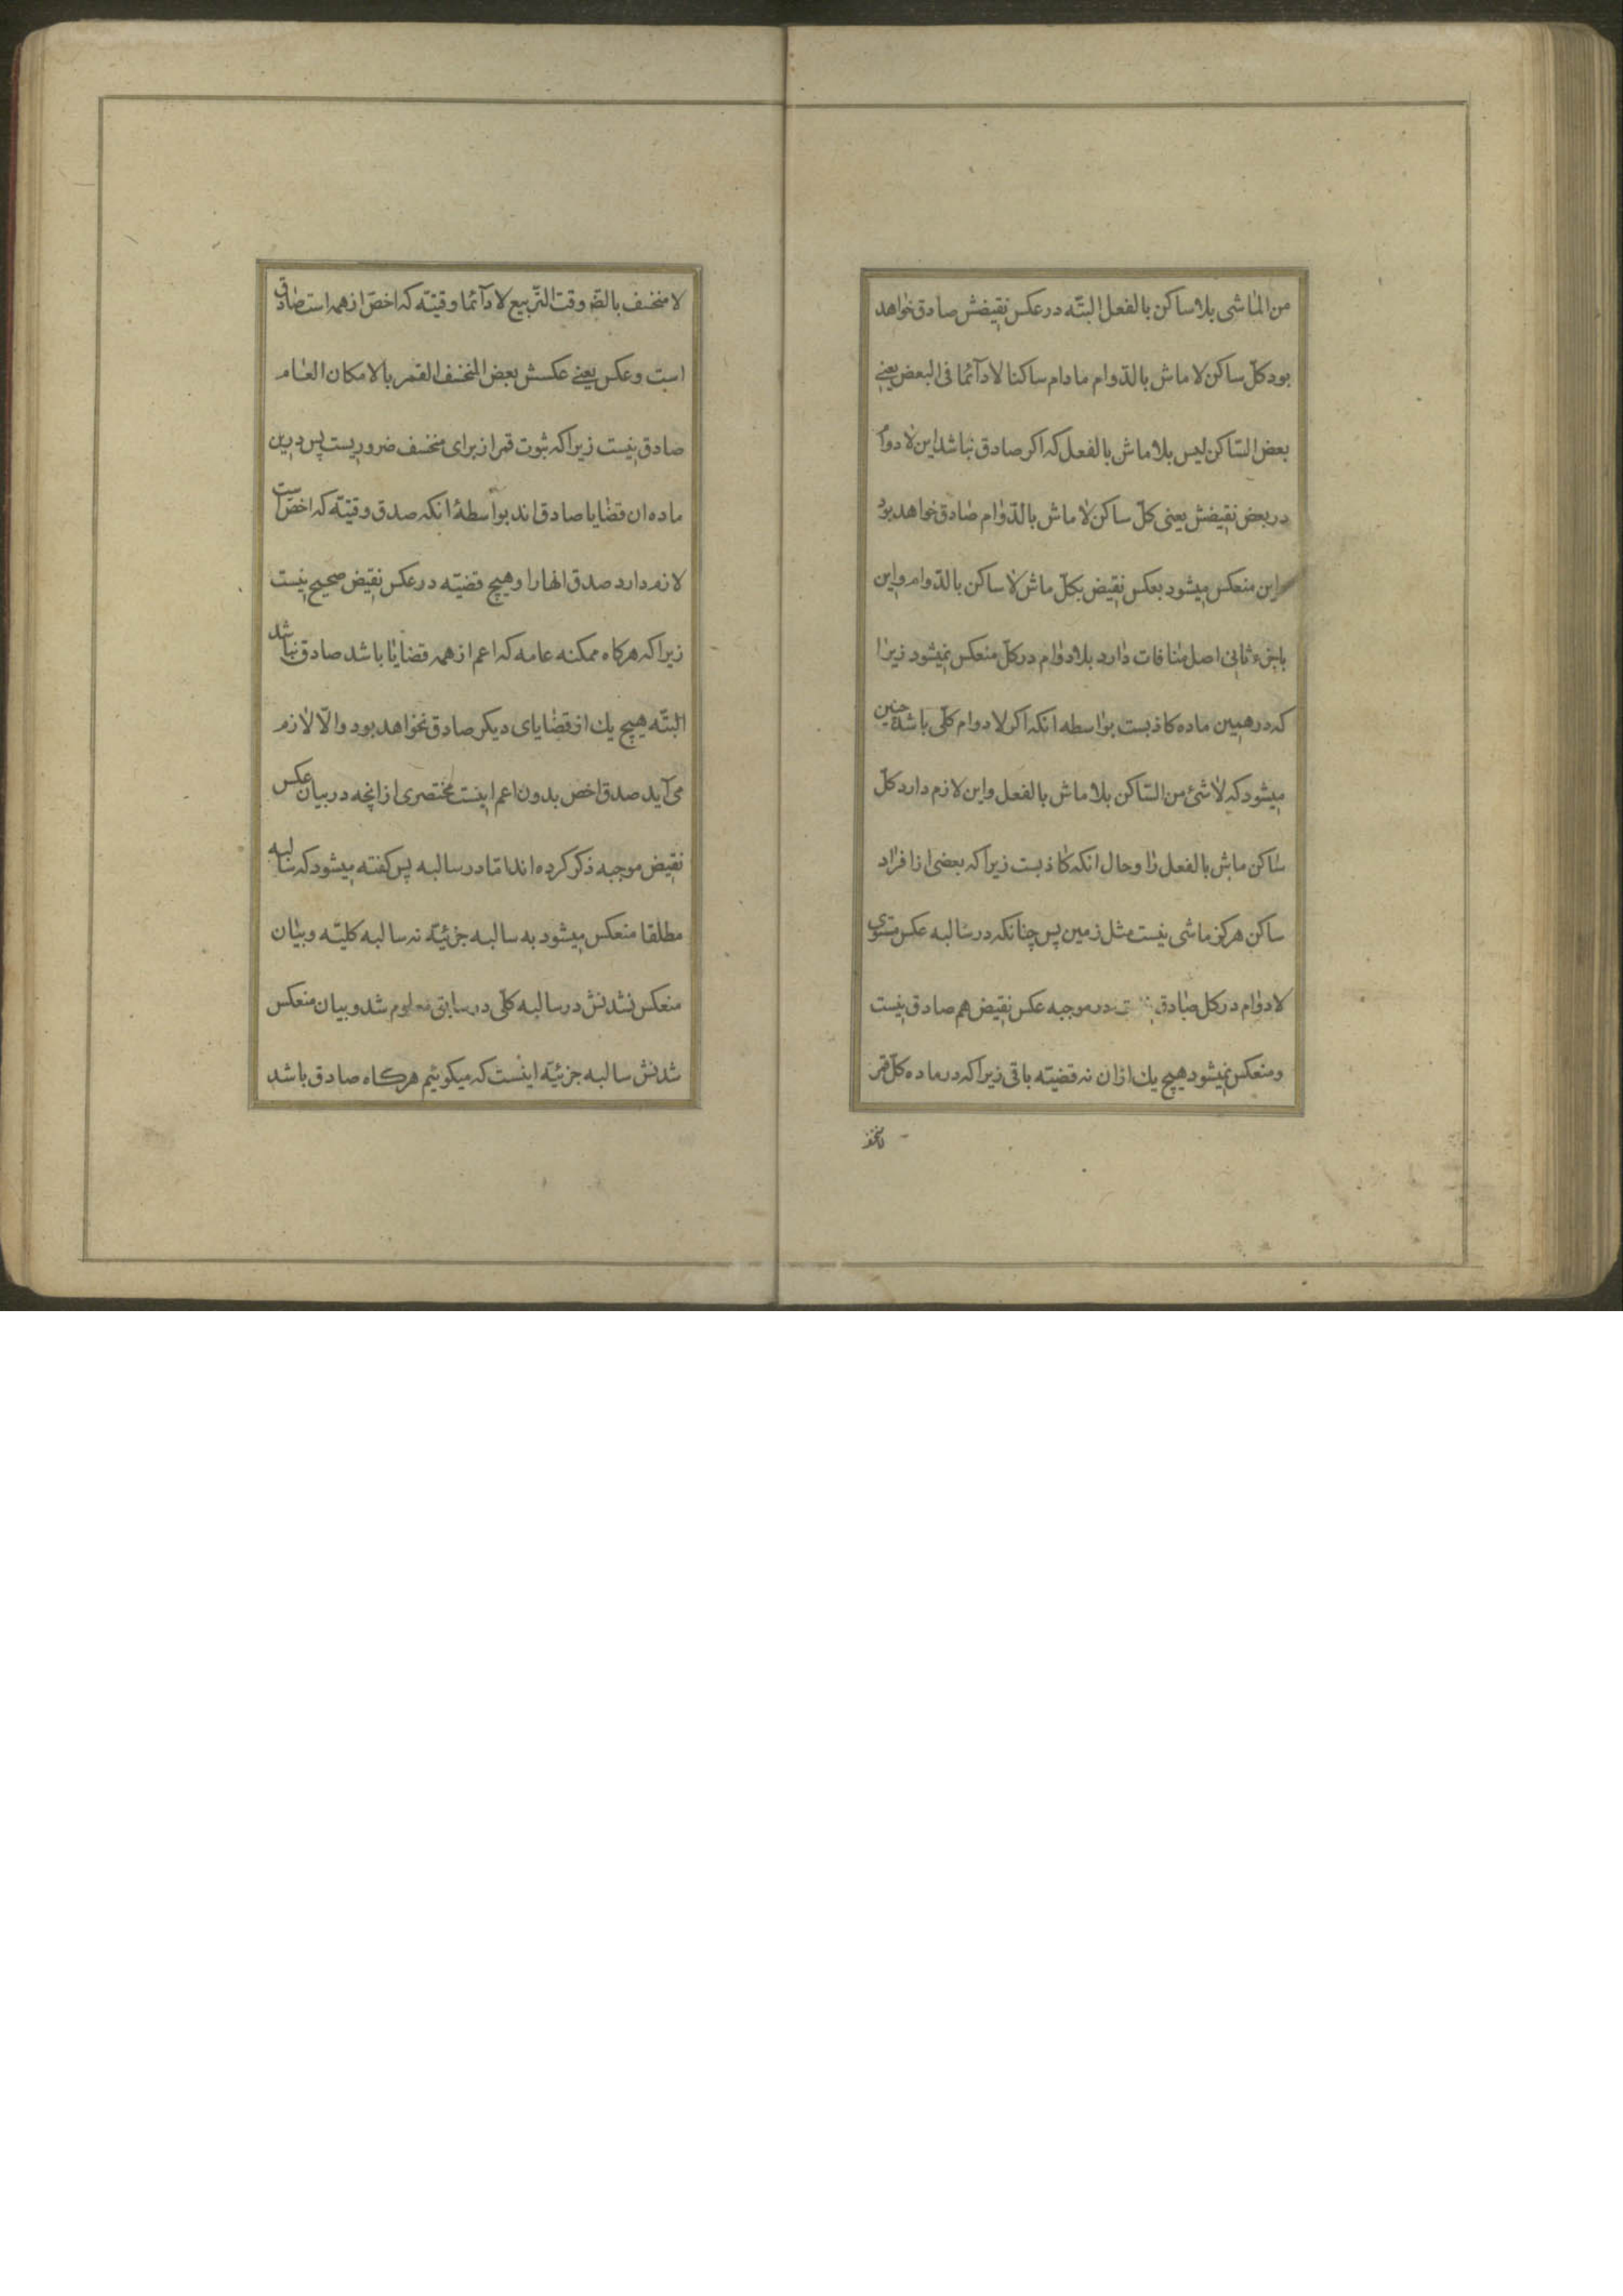 من الماشی بلا ساکن بالفعل البتّه در عکس نقیضش صادق خواهد
بود کلّ ساکن لا ماش بالدّوام مادام ساکنا لا دآئما فی البعض یعنے
بعض السّاکن لیس بلا ماش بالفعل که اکر صادق نباشد این لا دوام
در بعض نقیضش یعنی کلّ ساکن لا ماش بالدّوام صادق خواهد بود
و این منعکس میشود بعکس نقیض بکلّ ماش لا ساکن بالدّوام و این
با جزء ثانی اصل منافات دارد بلا دوام در کلّ منعکس نمیشود زیرا
که در همین ماده کاذبست بواسطه انکه اکر لا دوام کلّی باشد چنین
میشود که لا شئ من السّاکن بلا ماش بالفعل و این لازم دارد کلّ
ساکن ماش بالفعل را و حال انکه کاذبست زیرا که بعضی از افراد
ساکن هرکز ماشی نیست مثل زمین پس چنانکه در سالبه عکس مستوی
لا دوام در کل صادق در موجبه عکس نقیض هم صادق نیست
و منعکس نمیشود هیچ یك ازان نه قضیّه باقی زیرا که در ماده کلّ قمر
لا منخسف بالضّ وقت التّربیع لا دآئما وقتیّه که اخصّ از همه است صادق
است و عکس یعنے عکسش بعض المنخسف القمر بالامکان العام
صادق نیست زیرا که ثبوت قمر از برای منخسف ضروریست پس درین
ماده ان قضایا صادق اند بواسطهٔ انکه صدق وقتیّه که اخصّ است
لازم دارد صدق انها را و هیچ قضیّه در عکس نقیض صحیح نیست
زیرا که هرکاه ممکنه عامه که اعم از همه قضایا باشد صادق نباشد
البتّه هیچ یك از قضایای دیکر صادق نخواهد بود و الّا لازم
می آید صدق اخص بدون اعم اینست مختصری از انچه در بیان عکس
نقیض موجبه ذکر کرده اند امّا در سالبه پس کفته میشود که سالبه
مطلقا منعکس میشود به سالبه جزئیّة نه سالبه کلیّه و بیان
منعکس نشدنش در سالبه کلّی در سابق معلوم شد و بیان منعکس
شدنش سالبه جزئیّه اینست که میکوئیم هرکاه صادق باشد